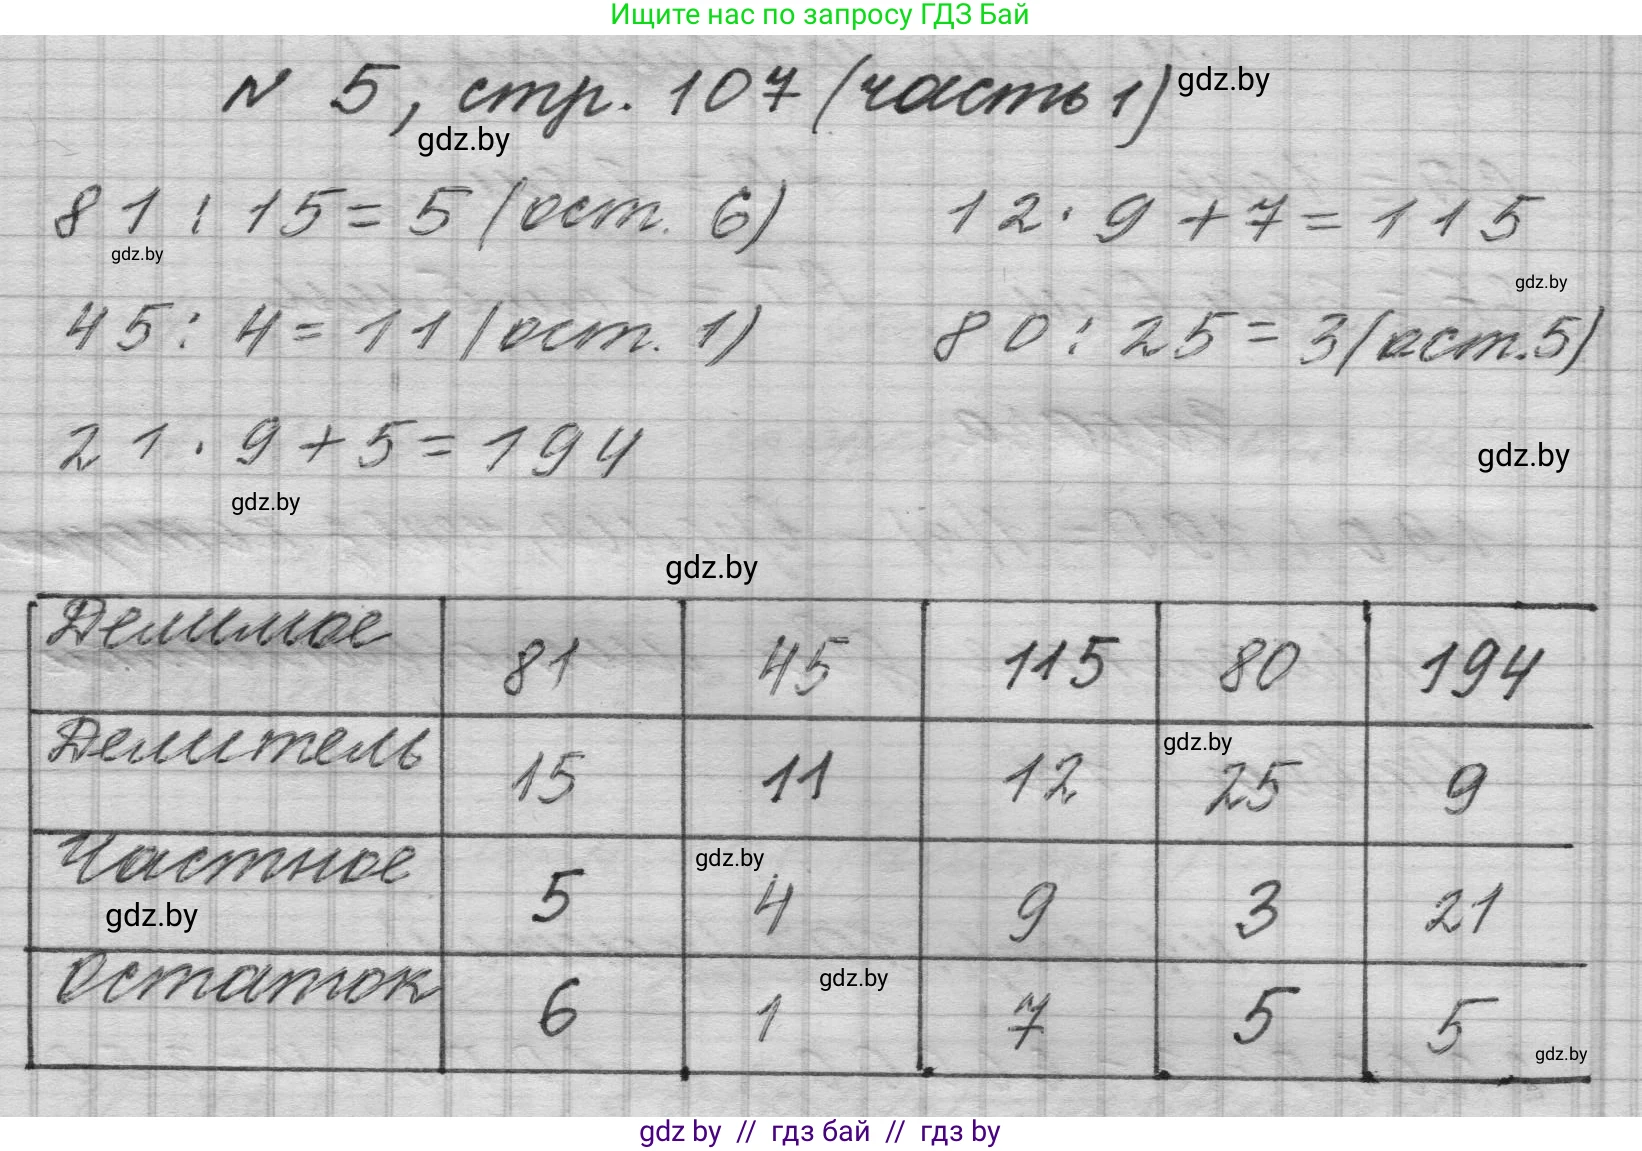 Ищите нас по запросу ГДЗ Бай
N 5, стр. 107 (часть 1) gdz.by
gdz.by
81 : 15 = 5 (ост. 6) 12 · 9 + 7 = 115
gdz.by
gdz.by
45 : 4 = 11 (ост. 1) 80 : 25 = 3 (ост. 5)
21 · 9 + 5 = 194
gdz.by
gdz.by
gdz.by
Делимое 81 45 115 80 194
Делитель 15 11 12 25 9
gdz.by
Частное 5 4 9 3 21
gdz.by
gdz.by
Остаток 6 1 7 5 5
gdz.by
gdz.by
gdz by // гдз бай // гдз by